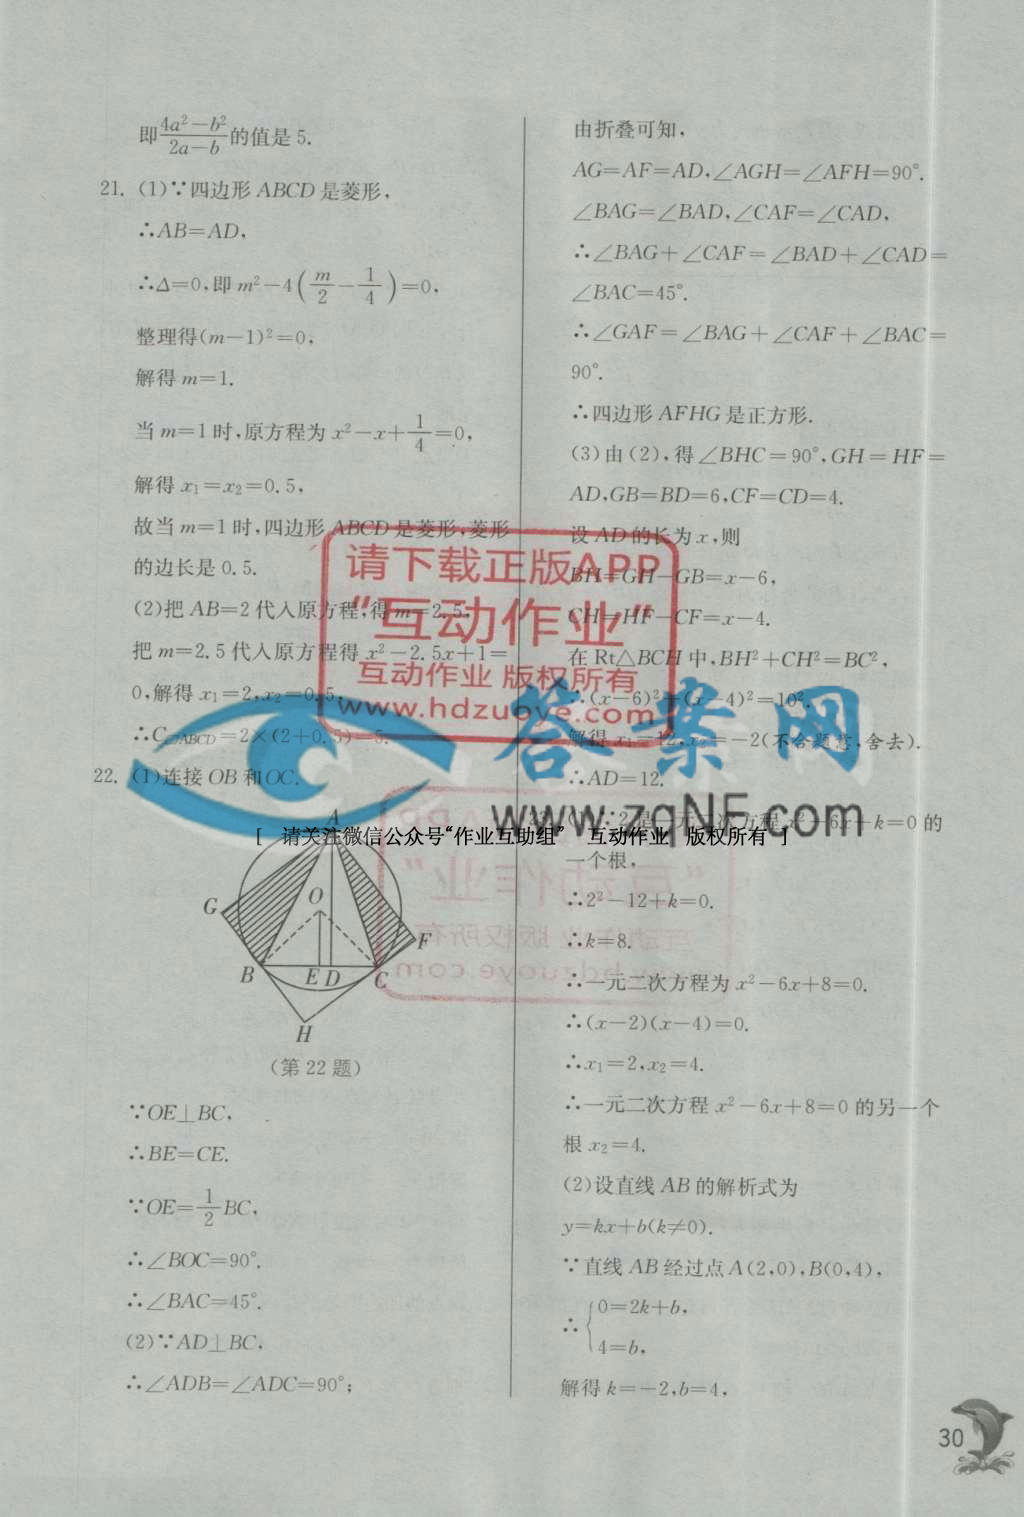 即\frac{4a²-b²}{2a-b}的值是 5.
21. (1)∵四边形 ABCD 是菱形,
∴AB=AD,
∴Δ=0,即 m²-4(\frac{m}{2}-\frac{1}{4})=0,
整理得(m-1)²=0,
解得 m=1.
当 m=1 时,原方程为 x²-x+\frac{1}{4}=0,
解得 x₁=x₂=0.5,
故当 m=1 时,四边形 ABCD 是菱形,菱形
的边长是 0.5.
(2)把 AB=2 代入原方程,得 m=2.5,
把 m=2.5 代入原方程得 x²-2.5x+1=
0,解得 x₁=2,x₂=0.5,
∴C▱ABCD=2×(2+0.5)=5.
22. (1)连接 OB 和 OC.
A
G
O
F
B E D C
H
(第 22 题)
∵OE⊥BC,
∴BE=CE.
∵OE=\frac{1}{2}BC,
∴∠BOC=90°.
∴∠BAC=45°.
(2)∵AD⊥BC,
∴∠ADB=∠ADC=90°;
由折叠可知,
AG=AF=AD,∠AGH=∠AFH=90°.
∠BAG=∠BAD,∠CAF=∠CAD,
∴∠BAG+∠CAF=∠BAD+∠CAD=
∠BAC=45°.
∴∠GAF=∠BAG+∠CAF+∠BAC=
90°.
∴四边形 AFHG 是正方形.
(3)由(2),得∠BHC=90°,GH=HF=
AD,GB=BD=6,CF=CD=4.
设 AD 的长为 x,则
BH=GH-GB=x-6,
CH=HF-CF=x-4.
在 Rt△BCH 中,BH²+CH²=BC²,
∴(x-6)²+(x-4)²=10².
解得 x₁=12,x₂=-2(不合题意,舍去).
∴AD=12.
23. (1)∵2 是一元二次方程 x²-6x+k=0 的
一个根,
∴2²-12+k=0.
∴k=8.
∴一元二次方程为 x²-6x+8=0.
∴(x-2)(x-4)=0.
∴x₁=2,x₂=4.
∴一元二次方程 x²-6x+8=0 的另一个
根 x₂=4.
(2)设直线 AB 的解析式为
y=kx+b(k≠0).
∵直线 AB 经过点 A(2,0),B(0,4),
∴{0=2k+b,
4=b,
解得 k=-2,b=4,
30
请下载正版APP
“互动作业”
互动作业 版权所有
www.hdzuoye.com
答案网
www.zqNF.com
[ 请关注微信公众号“作业互助组” 互动作业 版权所有 ]